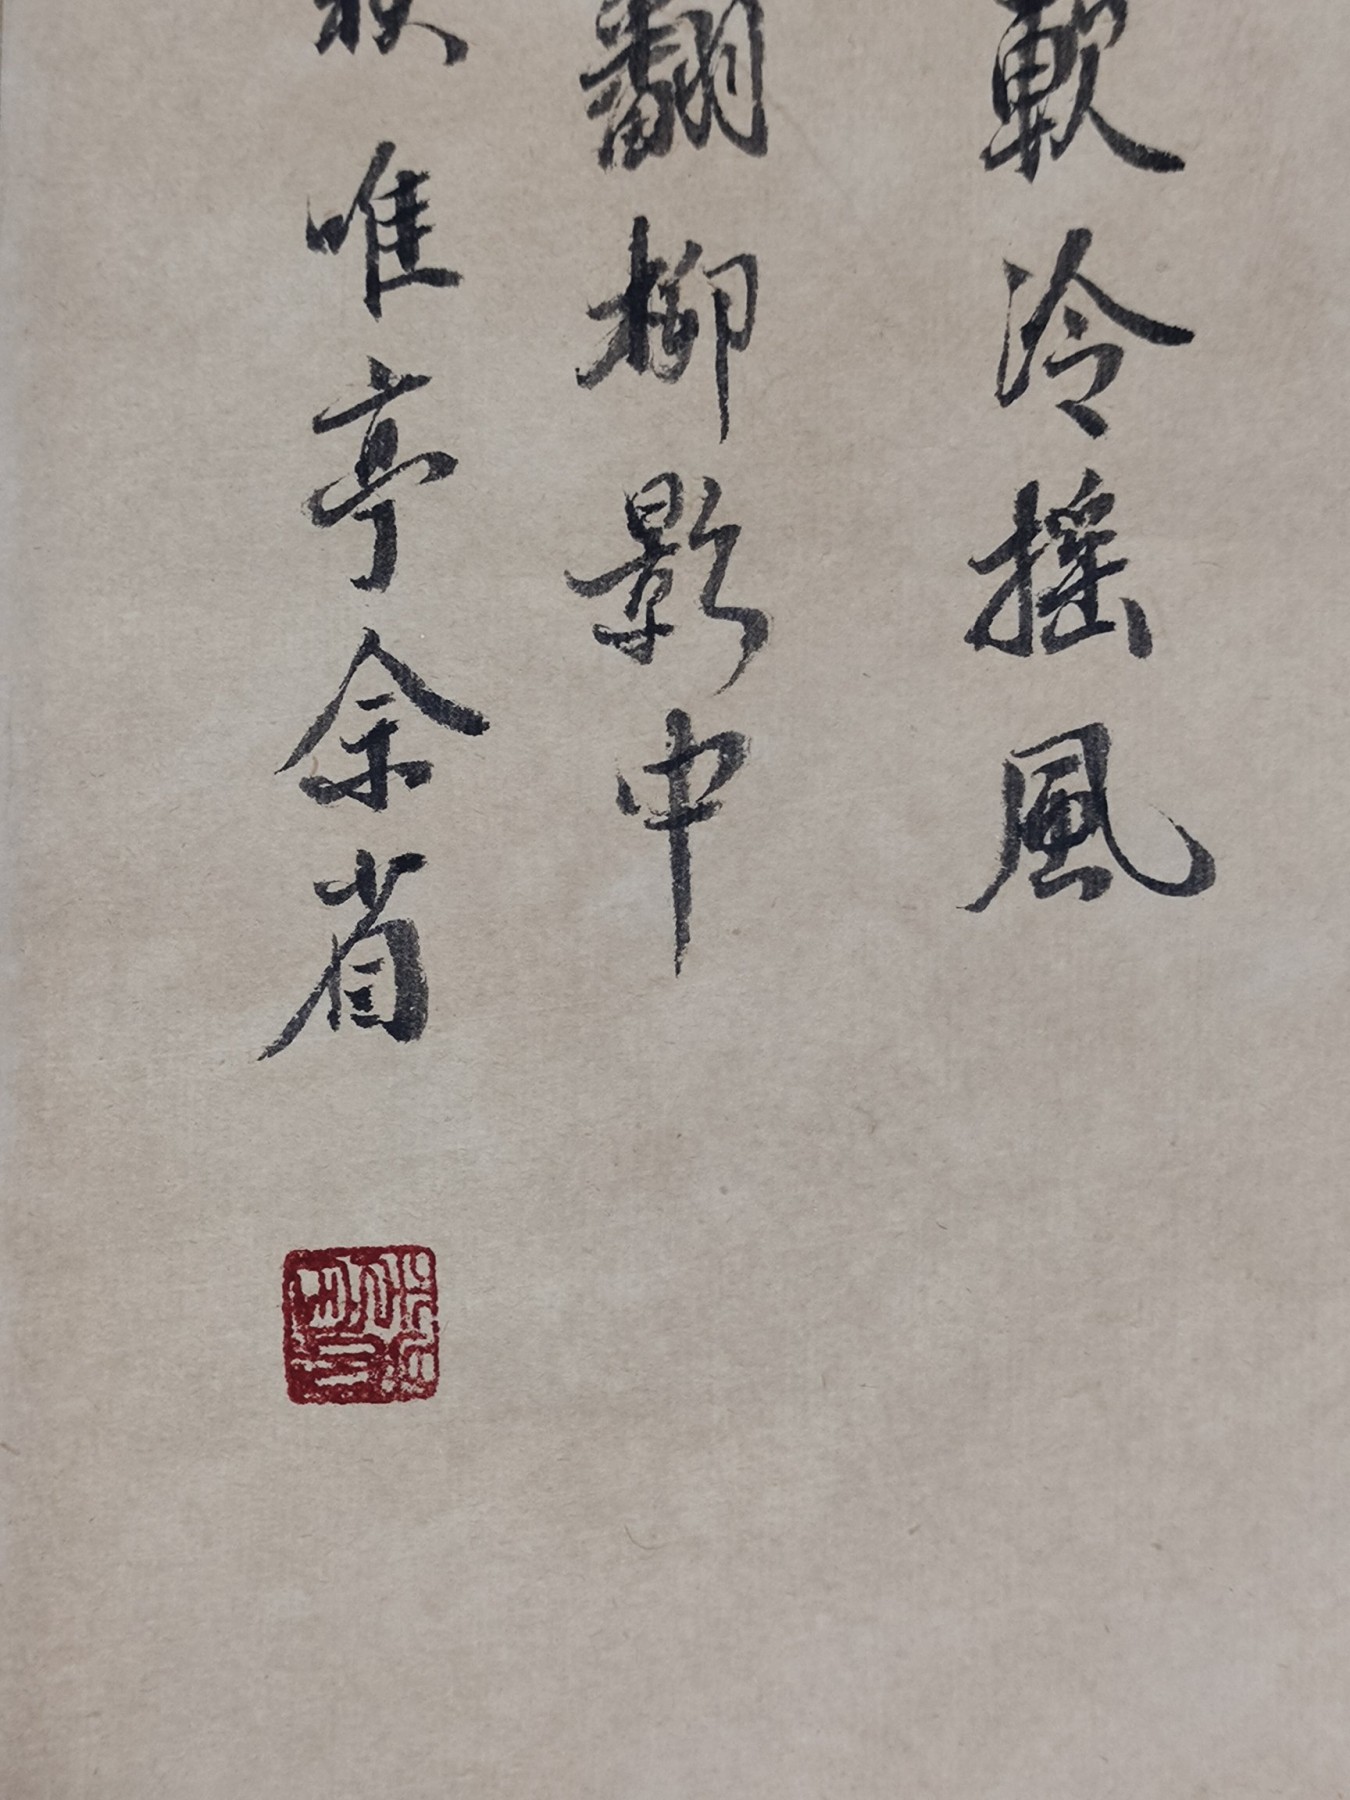 軟冷搖風
翻柳影中
唯亭余省